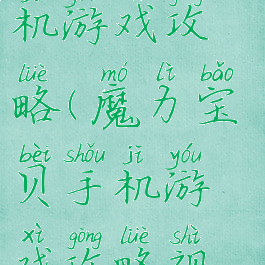 机游戏攻
lüè mó lì bǎo
略(魔力宝
bèi shǒu jī yóu
贝手机游
xì gōng lüè shì
戏攻略视